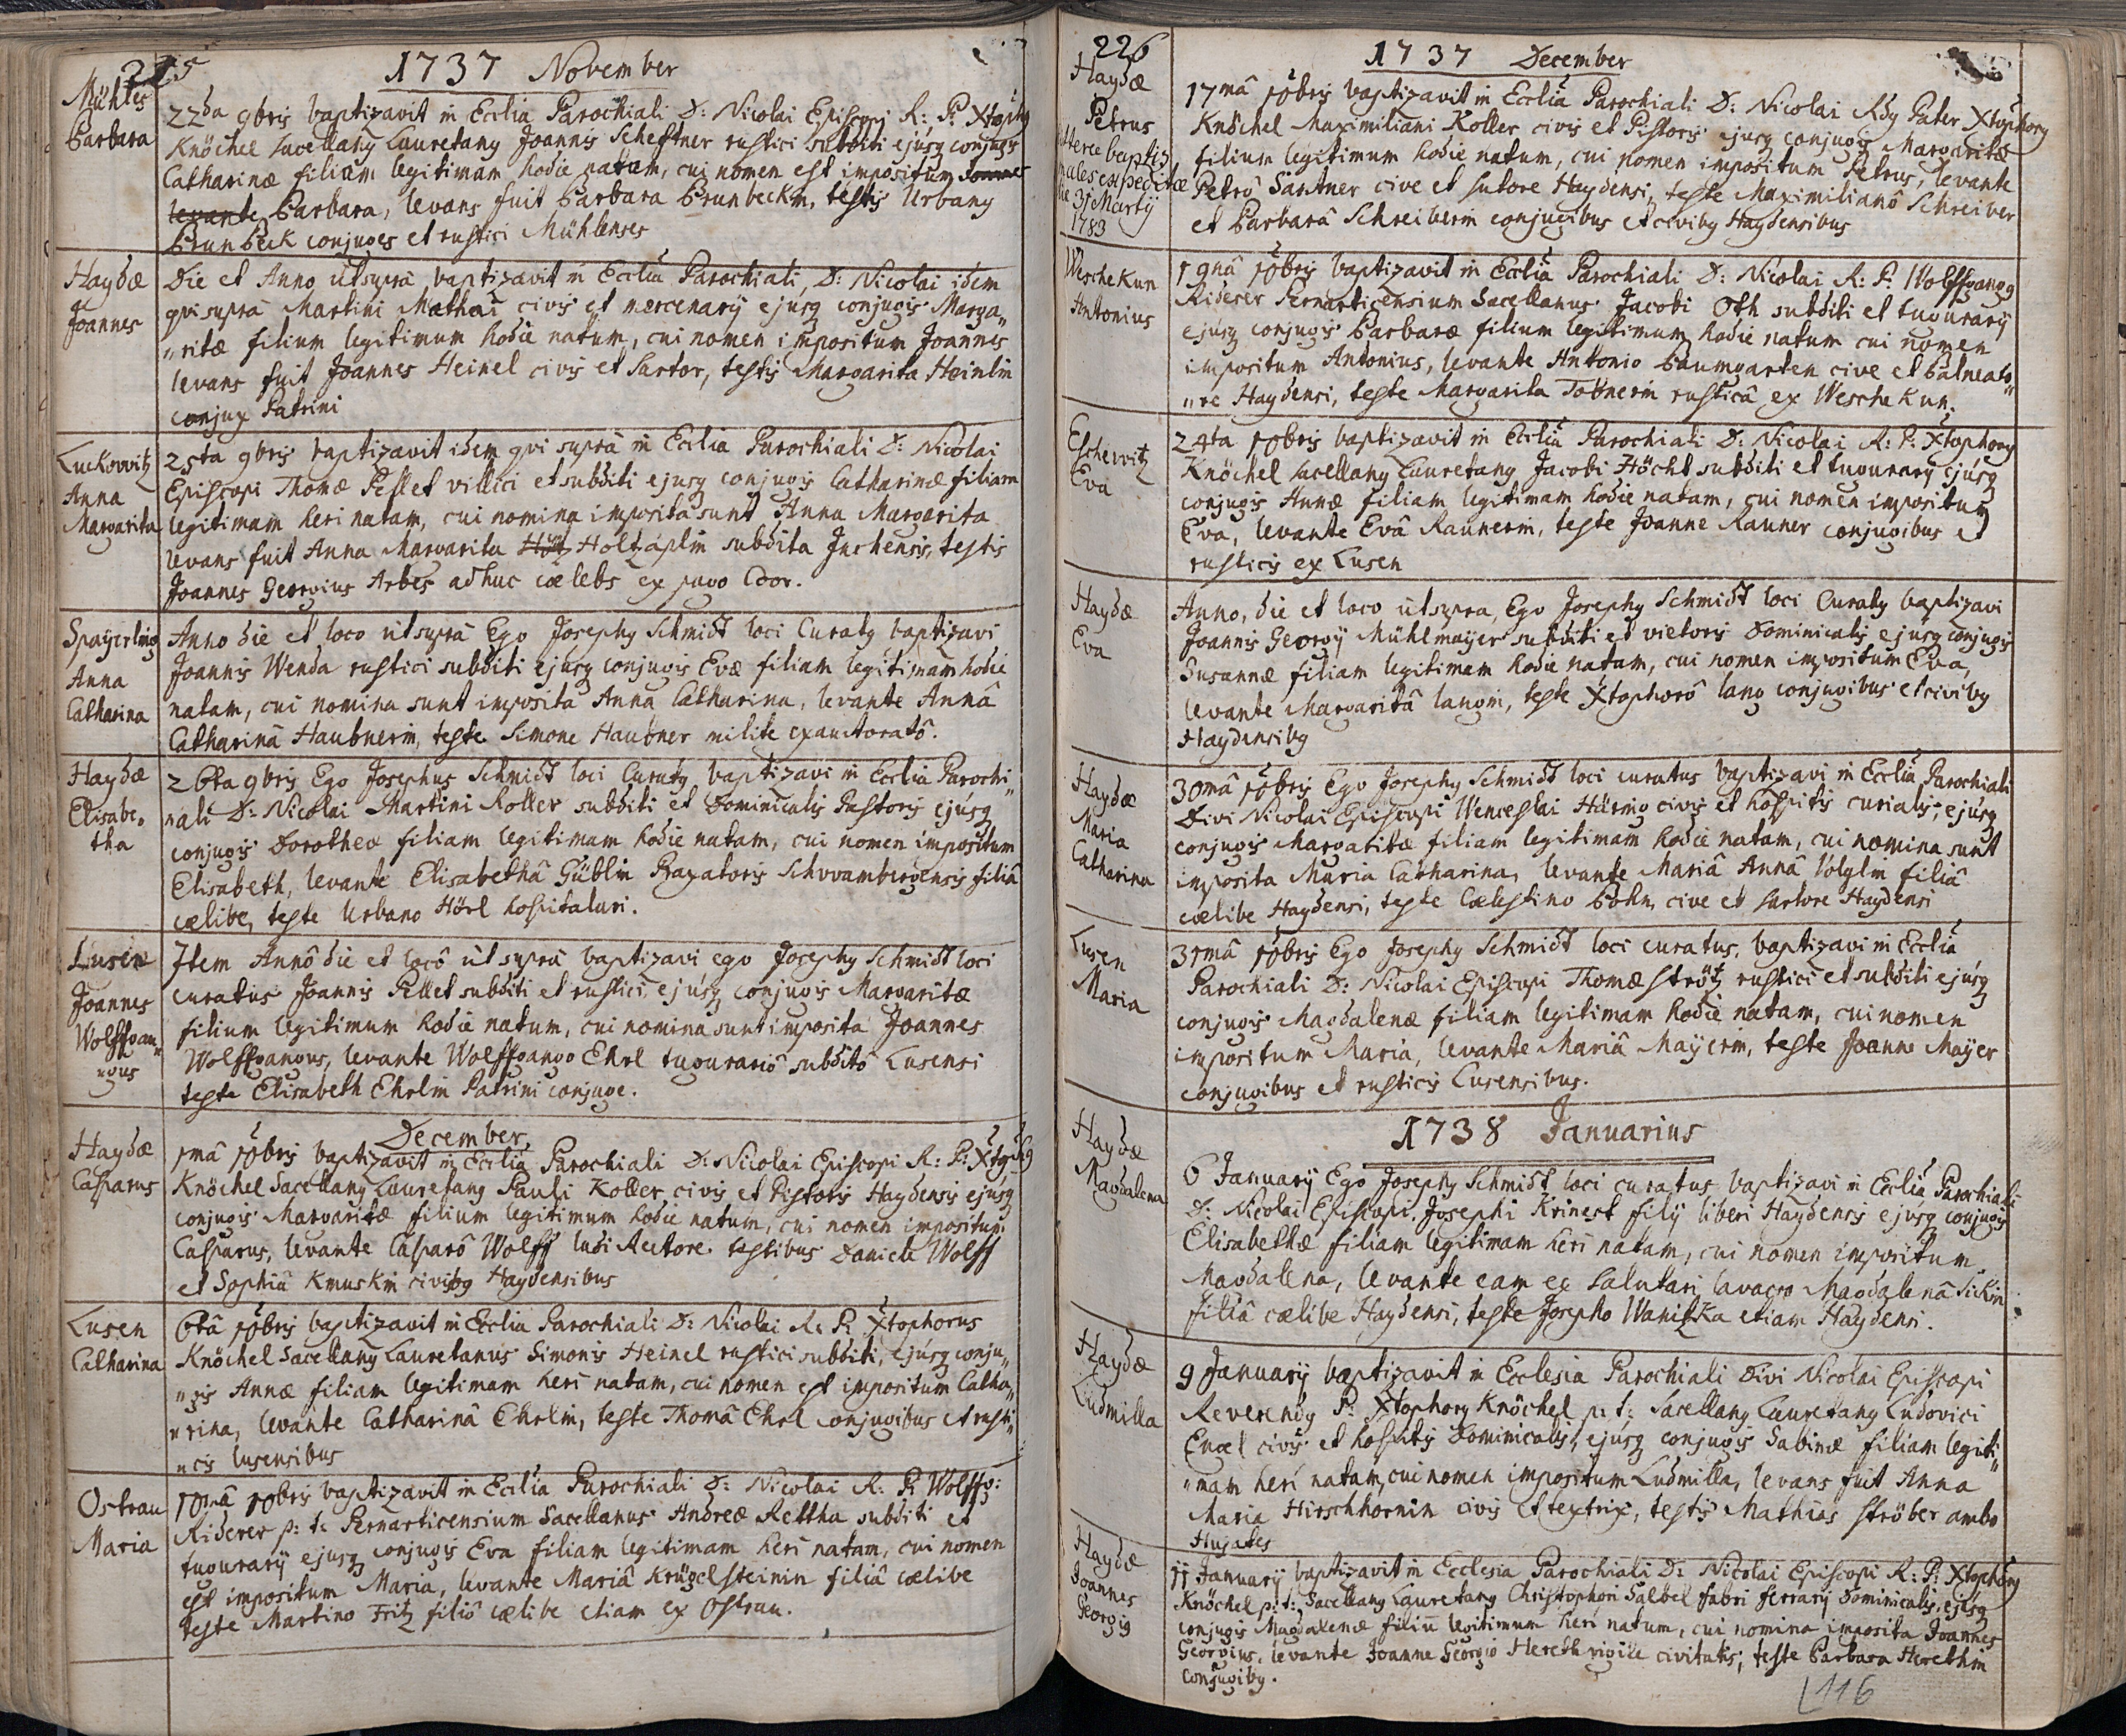 225
1737 November
Mühles
Barbara
22da 9bris baptizavit in Ecclia Parochiali D: Nicolai Episcopi R: P: Xtophg
Knöchel sacellang Lauretang Joannis Scheftner rustici subditi ejusq conjugis
Catharinæ filiam legitimam hodie natam, cui nomen est impositum
levante Barbara, levans fuit Barbara Brunbeckin, testis Urbang
Brunbeck conjuges et rustici Mühlenses
Haydæ
Joannes
Die et Anno, ut supra baptizavit in Ecclia Parochiali, D: Nicolai idem
qvi supra Martini Mathai civis et mercenarÿ ejusq conjugis Marga„
„ritæ filium legitimum hodie natum, cui nomen impositum Joannes
levans fuit Joannes Heinel civis et Sartor, testis Margarita Heinlin
conjux Patrini
Luckowitz
Anna
Margarita
25ta 9bris baptizavit idem qvi supra in Ecclia Parochiali D: Nicolai
Episcopi Thomæ Pellet villici et subditi ejusq conjugis Catharinæ filiam
legitimam heri natam, cui nomina imposita sunt Anna Margarita
levans fuit Anna Margarita Holtzäplin subdita Juchensis, testis
Joannes Georgius Arbes adhuc cælebs ex pago Goor.
Spayerling
Anna
Catharina
Anno die et loco ut supra Ego Josephg Schmidt loci Curatg baptizavi
Joannis Wenda rustici subditi ejusq conjugis Evæ filiam legitimam hodie
natam, cui nomina sunt imposita Anna Catharina, levante Annâ
Catharinâ Haubnerin, teste Simone Haubner milite exauctoratô.
Haydæ
Elisabe„
tha
26ta 9bris Ego Josephus Schmidt loci Curatg baptizavi in Ecclia Parochi„
„ali D: Nicolai Martini Koller subditi et Dominicalis Pastoris ejusq
conjugis Dorotheæ filiam legitimam hodie natam, cui nomen impositum
Elisabeth, levante Elisabethâ Güblin Braxatoris Schwambergensis filiâ
cælibe, teste Urbano Hörl hospitalari.
Lusen
Joannes
Wolffgan„
„gus
Item Annô die et locô ut supra baptizavi ego Josephg Schmidt loci
curatus Joannis Pellet subditi et rustici, ejusq conjugis Margaritæ
filium legitimum hodie natum, cui nomina sunt imposita Joannes
Wolffgangus, levante Wolffgango Ehrl tugurariô subditô Lusensi
teste Elisabeth Ehrlin Patrini conjuge.
December
Haydæ
Casparus
1mâ 10bris baptizavit in Ecclia Parochiali D: Nicolai Episcopi R: P: Xtophg
Knöchel Sacellang Lauretang Pauli Koller civis et Pistoris Haydensis ejusq
conjugis Margaritæ filium legitimum hodie natum, cui nomen impositum
Casparus, levante Casparô Wolff ludi Rectore. testibus Daniele Wolff
et Sophiâ Kmuskin civibg Haydensibus
Lusen
Catharina
6tâ 10bris baptizavit in Ecclia Parochiali D: Nicolai R: P: Xtophorus
Knöchel Sacellang Lauretanus Simonis Heinel rustici subditi, ejusq conju„
„gis Annæ filiam legitimam heri natam, cui nomen est impositum Catha„
„rina, levante Catharinâ Ehrlin, teste Thomâ Ehrl conjugibus et rusti„
„cis lusensibus
Ostrau
Maria
10mâ 10bris baptizavit in Ecclia Parochiali D: Nicolai R: P: Wolffg:
Riderer p: t: Pernarticensium Sacellanus Andreæ Rettha subditi et
tugurarÿ ejusq conjugis Eva filiam legitimam heri natam, cui nomen
est impositum Maria, levante Mariâ Krügelsteinin filiâ cælibe
teste Martino Fritz filiô cælibe etiam ex Ostrau.
226
1737 December
Haydæ
Petrus
litteræ baptis
males expeditæ
die 31 Martÿ
1783
17mâ 10bris baptizavit in Ecclia Parochiali D: Nicolai Rdg Pater Xtophorg
Knöchel Maximiliani Koller civis et Pistoris ejusq conjugis Margaritæ
filium legitimum hodie natum, cui nomen impositum Petrus, levante
Petrô Santner cive et sutore Haydensi, teste Maximilianô Schreiber
et Barbarâ Schreiberin conjugibus et civibg Haydensibus
Weschekun
Antonius
19nâ 10bris baptizavit in Ecclia Parochiali D: Nicolai R: P: Wolffgangg
Riderer Pernarticensium Sacellanus Jacobi Oth subditi et tugurarÿ
ejusq conjugis Barbaræ filium legitimum hodie natum cui nomen
impositum Antonius, levante Antonio Baumgarten cive et balneato„
„re Haydensi, teste Margarita Tobnerin rusticâ ex Weschekun.
Eschewitz
Eva
24ta 10bris baptizavit in Ecclia Parochiali D: Nicolai R: P: Xtophorg
Knöchel sacellang Lauretang Jacobi Höcht subditi et tugurarÿ ejusq
conjugis Annæ filiam legitimam hodie natam, cui nomen impositum
Eva, levante Evâ Raunerin, teste Joanne Rauner conjugibus et
rusticis ex Lusen
Haydæ
Eva
Anno, die et loco ut supra, Ego Josephg Schmidt loci Curatg baptizavi
Joannis Georgÿ Mühlmayer subditi et vietoris Dominicalis ejusq conjugis
Susannæ filiam legitimam hodie natam, cui nomen impositum Eva,
levante Margaritâ Langin, teste Xtophorô lang conjugibus et civibg
Haydensibg
Haydæ
Maria
Catharina
30mâ 10bris Ego Josephg Schmidt loci curatus baptizavi in Ecclia Parochiali
Divi Nicolai Episcopi Wenceslai Häring civis et hospitis curialis, ejusq
conjugis Margatitæ filiam legitimam hodie natam, cui nomina sunt
imposita Maria Catharina, levante Mariâ Annâ Völglin filiâ
cælibe Haydensi, teste CælestinoBöhm, cive et sartore Haydensi
Lusen
Maria
31mâ 10bris Ego Josephg Schmidt loci curatus, baptizavi in Ecclia
Parochiali D: Nicolai Episcopi Thomæ Strötz rustici et subditi ejusq
conjugis Magdalenæ filiam legitimam hodie natam, cui nomen
impositum Maria, levante Mariâ Mayerin, teste Joanne Mayer
conjugibus et rusticis Lusensibus.
1738 Januarius
Haydæ
Magdalena
6 Januarÿ Ego Josephg Schmidt loci curatus baptizavi in Ecclia Parochiali
D: Nicolai Episcopi, Josephi Krinest filÿ liberi Haydensis ejusq conjugis
Elisabethæ filiam legitimam heri natam, cui nomen impositum
Magdalena, levante eam ex salutari lavacro Magdalenâ Sickin
filiâ cælibe Haydensi, teste Josepho Wanitzka etiam Haydensi.
Haydæ
Ludmilla
9 Januarÿ baptizavit in Ecclesia Parochiali Divi Nicolai Episcopi
Reverendg P: Xtophorg Knöchel p: t: Sacellang Lauretang Ludovici
Engel civis et hospitis Dominicalis, ejusq conjugis Sabinæ filiam legiti„
„mam heri natam, cui nomen impositum Ludmilla, levans fuit Anna
Maria Hirschhornin civis et textrix, testis Mathias Ströber ambo
Hujates
Haydæ
Joannes
Georgig
11 Januarÿ baptizavit in Ecclesia Parochiali D: Nicolai Episcopi R: P: Xtophorg
Knöchel p: t: Sacellang Lauretang Christophori Salbel fabri ferrarÿ Dominicalis, ejusq
conjugis Magdalenæ filiu legitimum heri natum, cui nomina imposita Joannes
Georgius, levante Joanne Georgio Hereth vigile civitatis, teste Barbara Herethin
conjugibg.
116